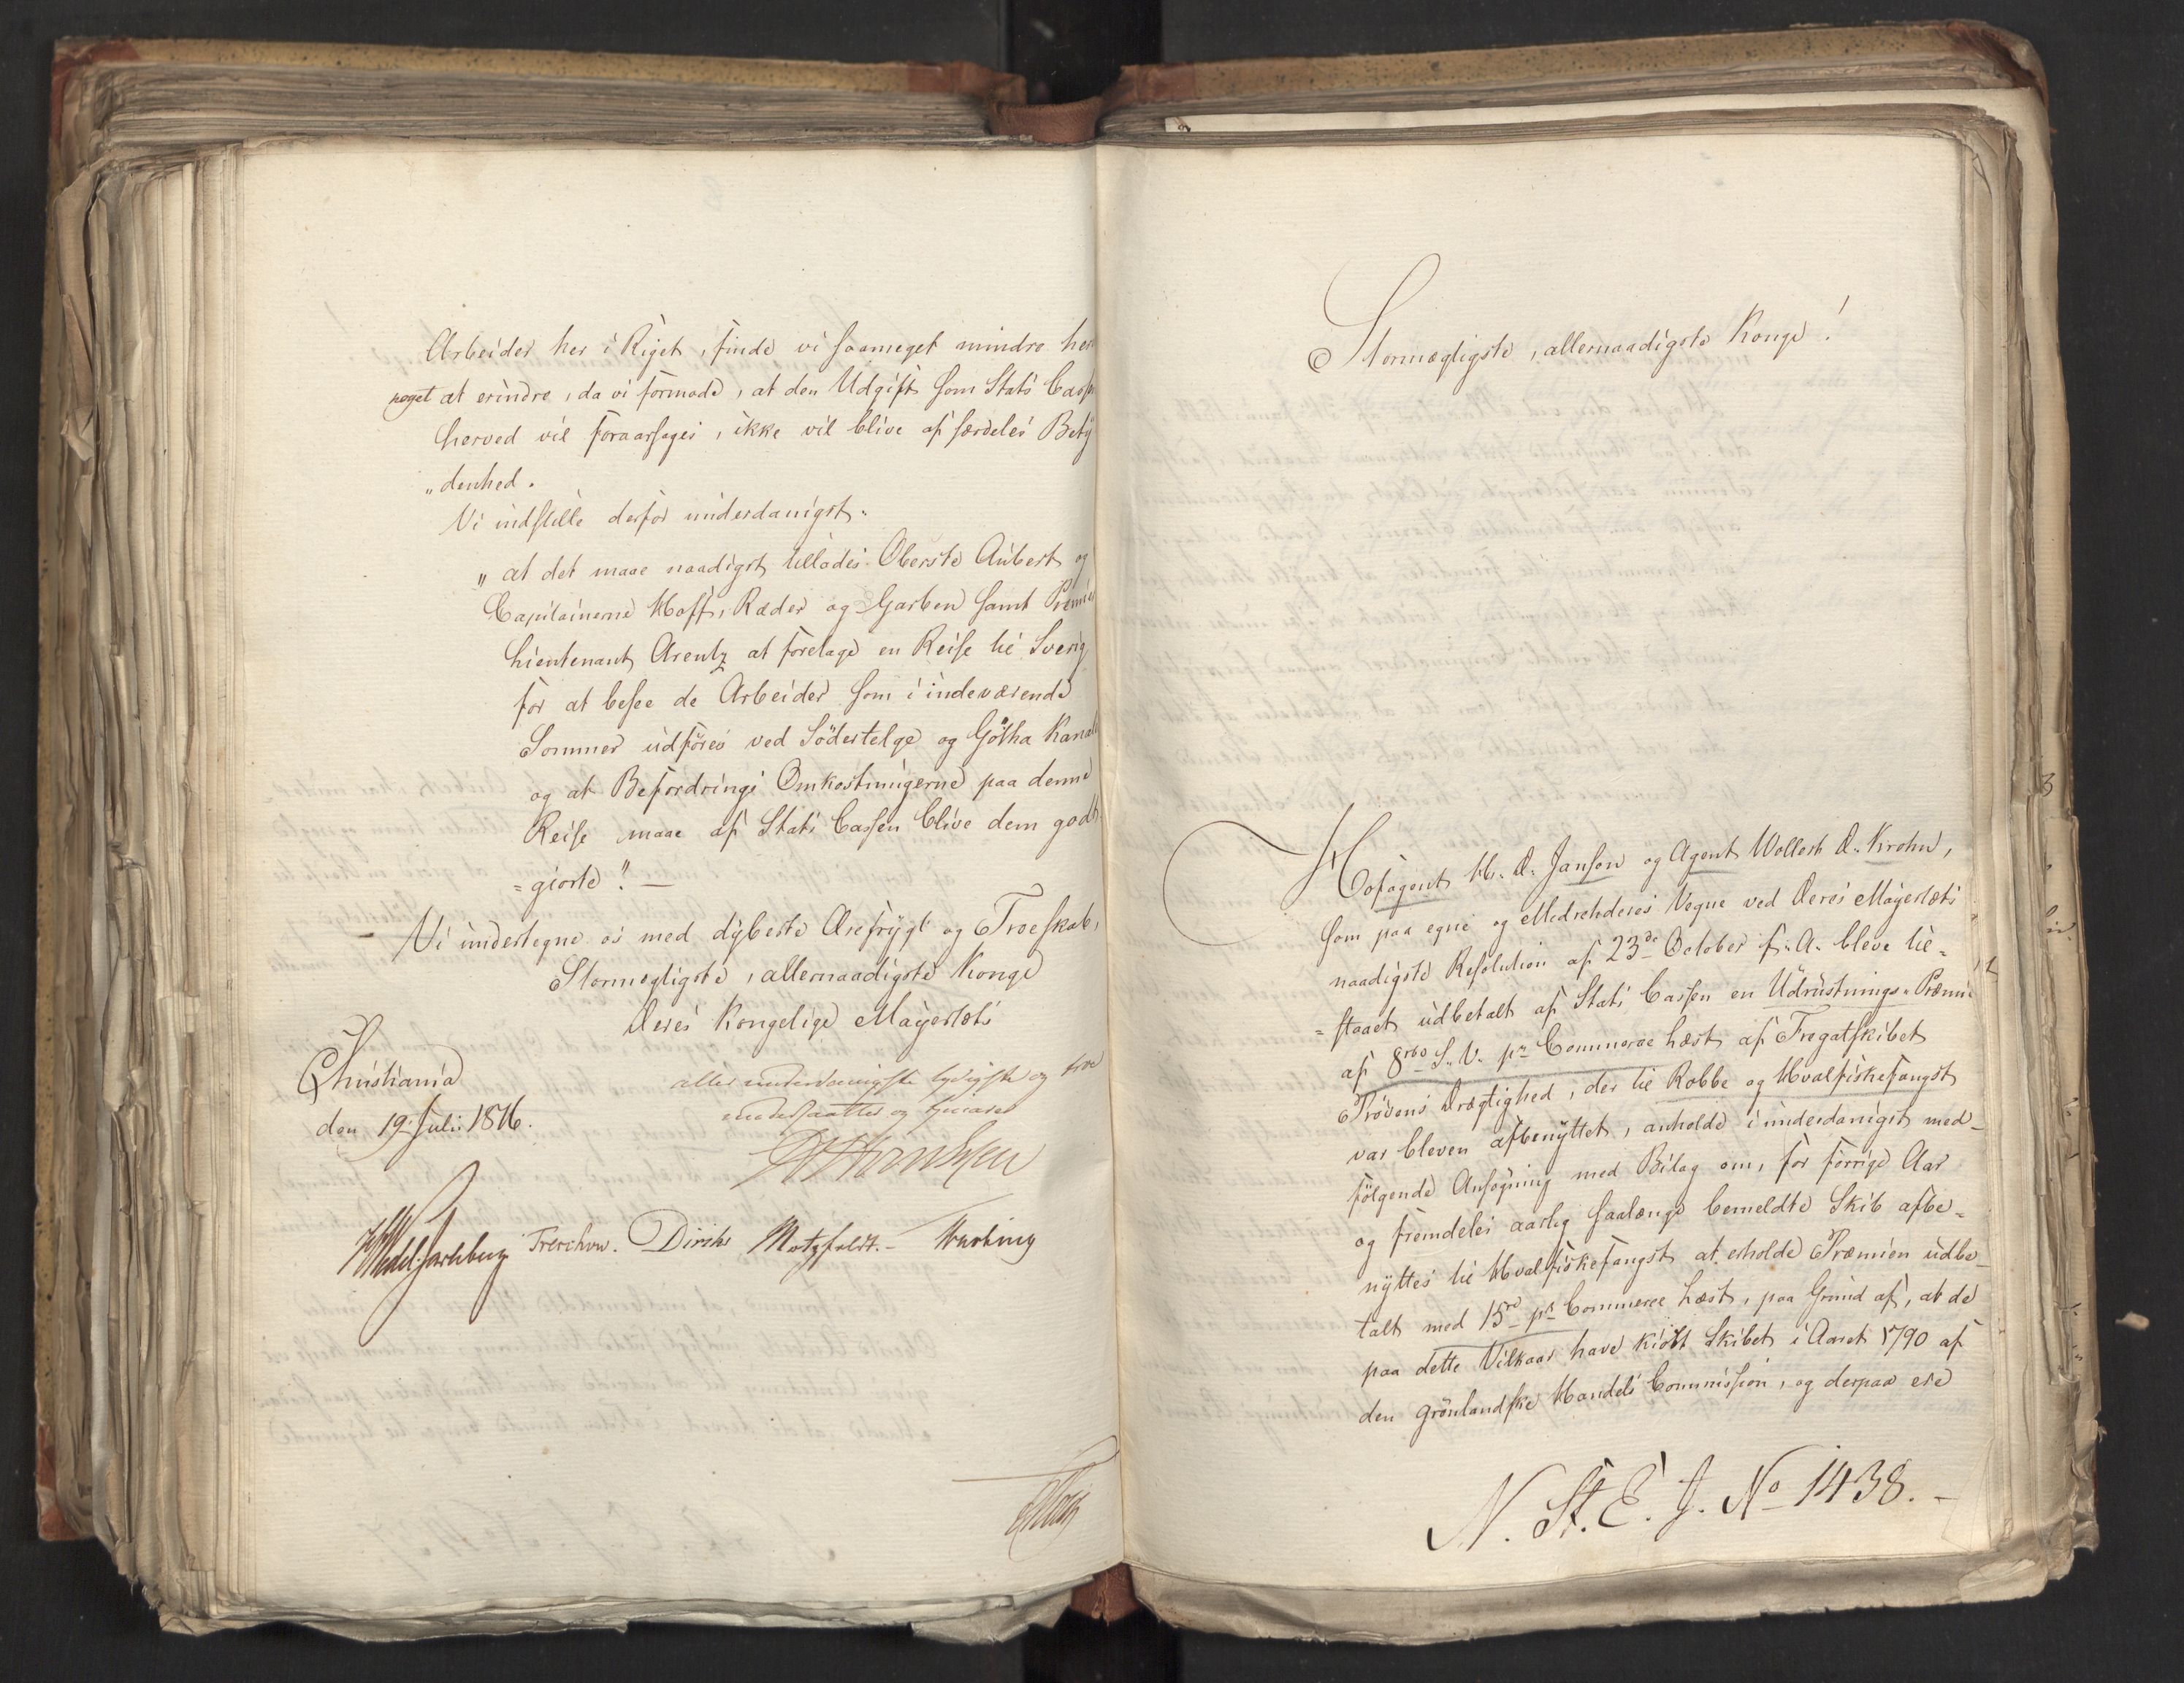 Arbeider her i Riget, finde vi saameget mindre her
noget at erindre, da vi formode, at den Udgift som Stats Cassen
herved vil foraarsages, ikke vil blive af særdeles Betÿ
„denhed.
Vi indstille derfor underdanigst.
„at det maae naadigst tillades Oberste Aubert og
Capitainerne Hoff, Ræder og Garben samt Premier
Lieutenant Arentz at foretage en Reise til Sverig
for at besee de Arbeider som i indeværende
Sommer udføres ved Södertelge og Götha Kanal
og at Befordrings Omkostningerne paa denne
Reise maae af Stats Cassen blive dem godt
=giorte". —
Vi undertegne os med dÿbeste Ærefrÿgt og Troeskab,
Stormegtigste, allernaadigste Konge
Deres Kongelige Majestæts
Christiania
den 19 Juli 1816.
allerunderdanigste lydigste og troe
undersaatter og tjenere
Wedel Jarlsberg Treschow. Diriks Motzfeldt. —
Stormægtigste, allernaadigste Konge!
Hofagent H. D. Janson og Agent Wollert D. Krohn,
som paa egne og Medrehderes Vegne ved Deres Majestæts
naadigste Resolution af 23de October f. A. bleve til=
=staaet udbetalt af Stats Cassen en Udrustnings-Præmie
af 8rbd S. V. pr Commerce Læst af Fregatskibet
Prøvens Drægtighed, der til Robbe og Hvalfiskefangst
var bleven afbenÿttet, anholde i underdanigst med-
følgende Ansøgning med Bilag om, for forrige Aar
og fremdeles aarlig saalænge bemeldte Skib afbe=
nÿttes til Hvalfiskefangst at erholde Præmien udbe-
talt med 15rd pr Commerce Læst, paa Grund af, at de
paa dette Vilkaar have kiøbt Skibet i Aaret 1790 af
den grønlandske Handels Commission, og derpaa ere
N. St. E. J. No 1438. -